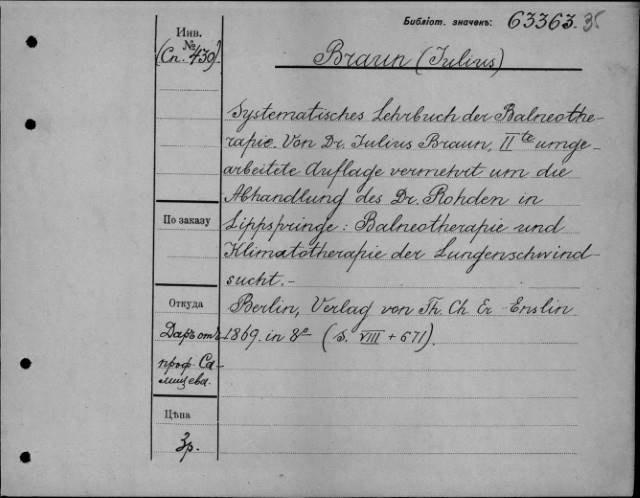 Библіот. значекъ: 63363. 35
Инв.
№
(Сп. 439).
Braun (Julius)
Systematisches Lehrbuch der Balneothe-
rapie. Von Dr. Julius Braun, II te umge-
arbeitete Auflage vermehrt um die
Abhandlung des Dr. Rohden in
По заказу
Lippspringe: Balneotherapie und
Klimatotherapie der Lungenschwind-
sucht. -
Откуда
Berlin, Verlag von Th. Ch. Er. Enslin
Даръ отъ
1869. in 8º (S. VIII + 671).
проф. Са-
мищева.
Цѣна
3р.